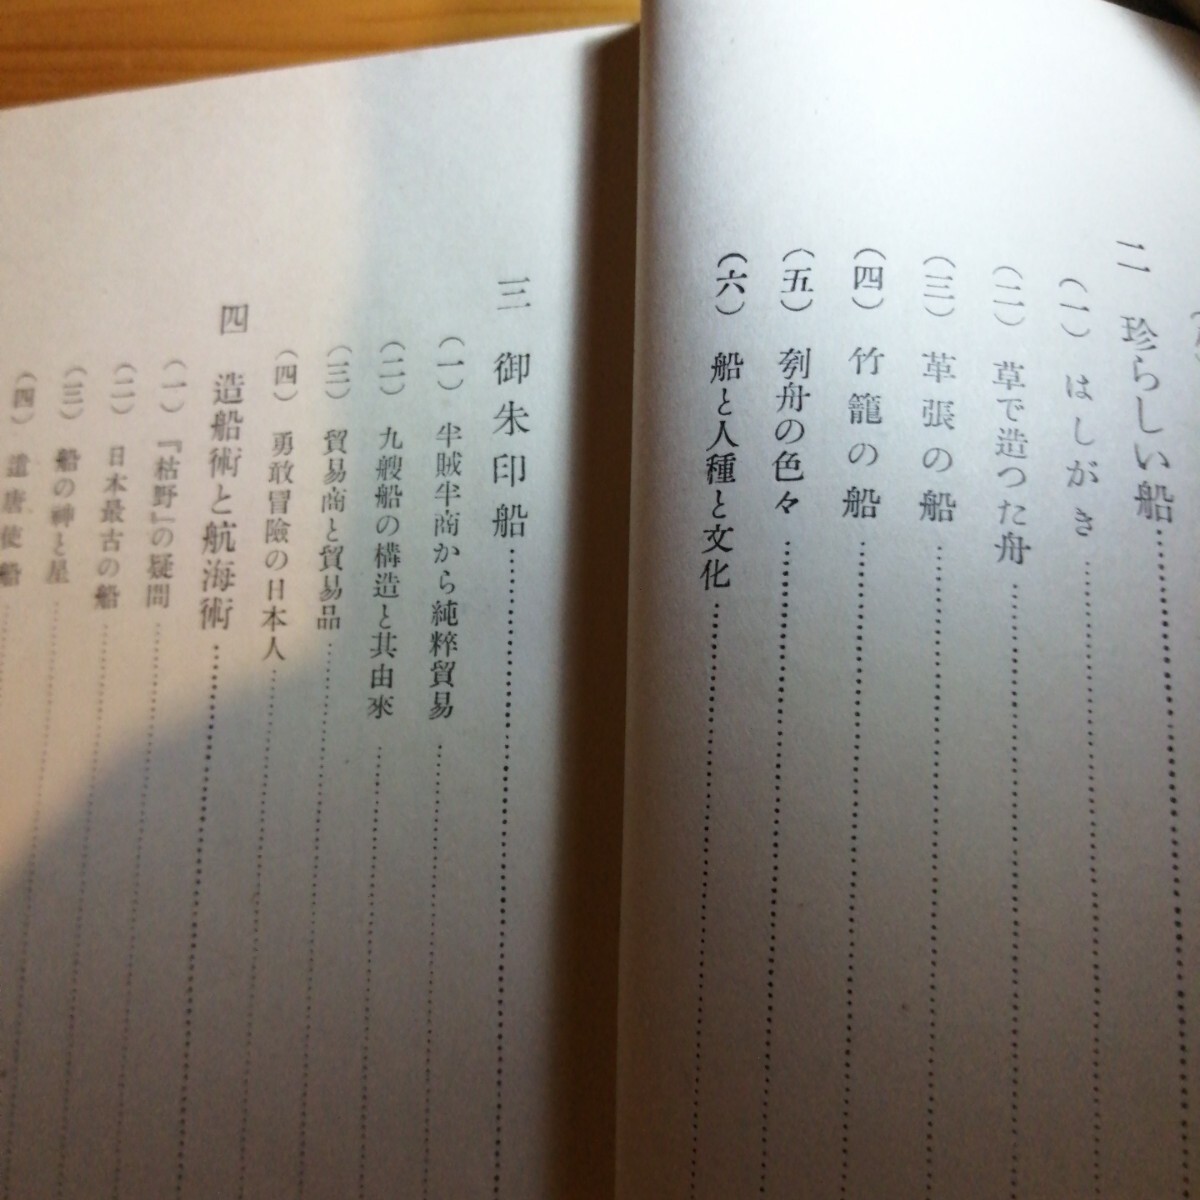 二　珍らしい船
（一）はしがき
（二）草で造つた舟
（三）革張の船
（四）竹籠の船
（五）刳舟の色々
（六）船と人種と文化
三　御朱印船
（一）半賊半商から純粹貿易
（二）九艘船の構造と其由來
（三）貿易商と貿易品
（四）勇敢冒險の日本人
四　造船術と航海術
（一）『枯野』の疑問
（二）日本最古の船
（三）船の神と星
（四）遣唐使船